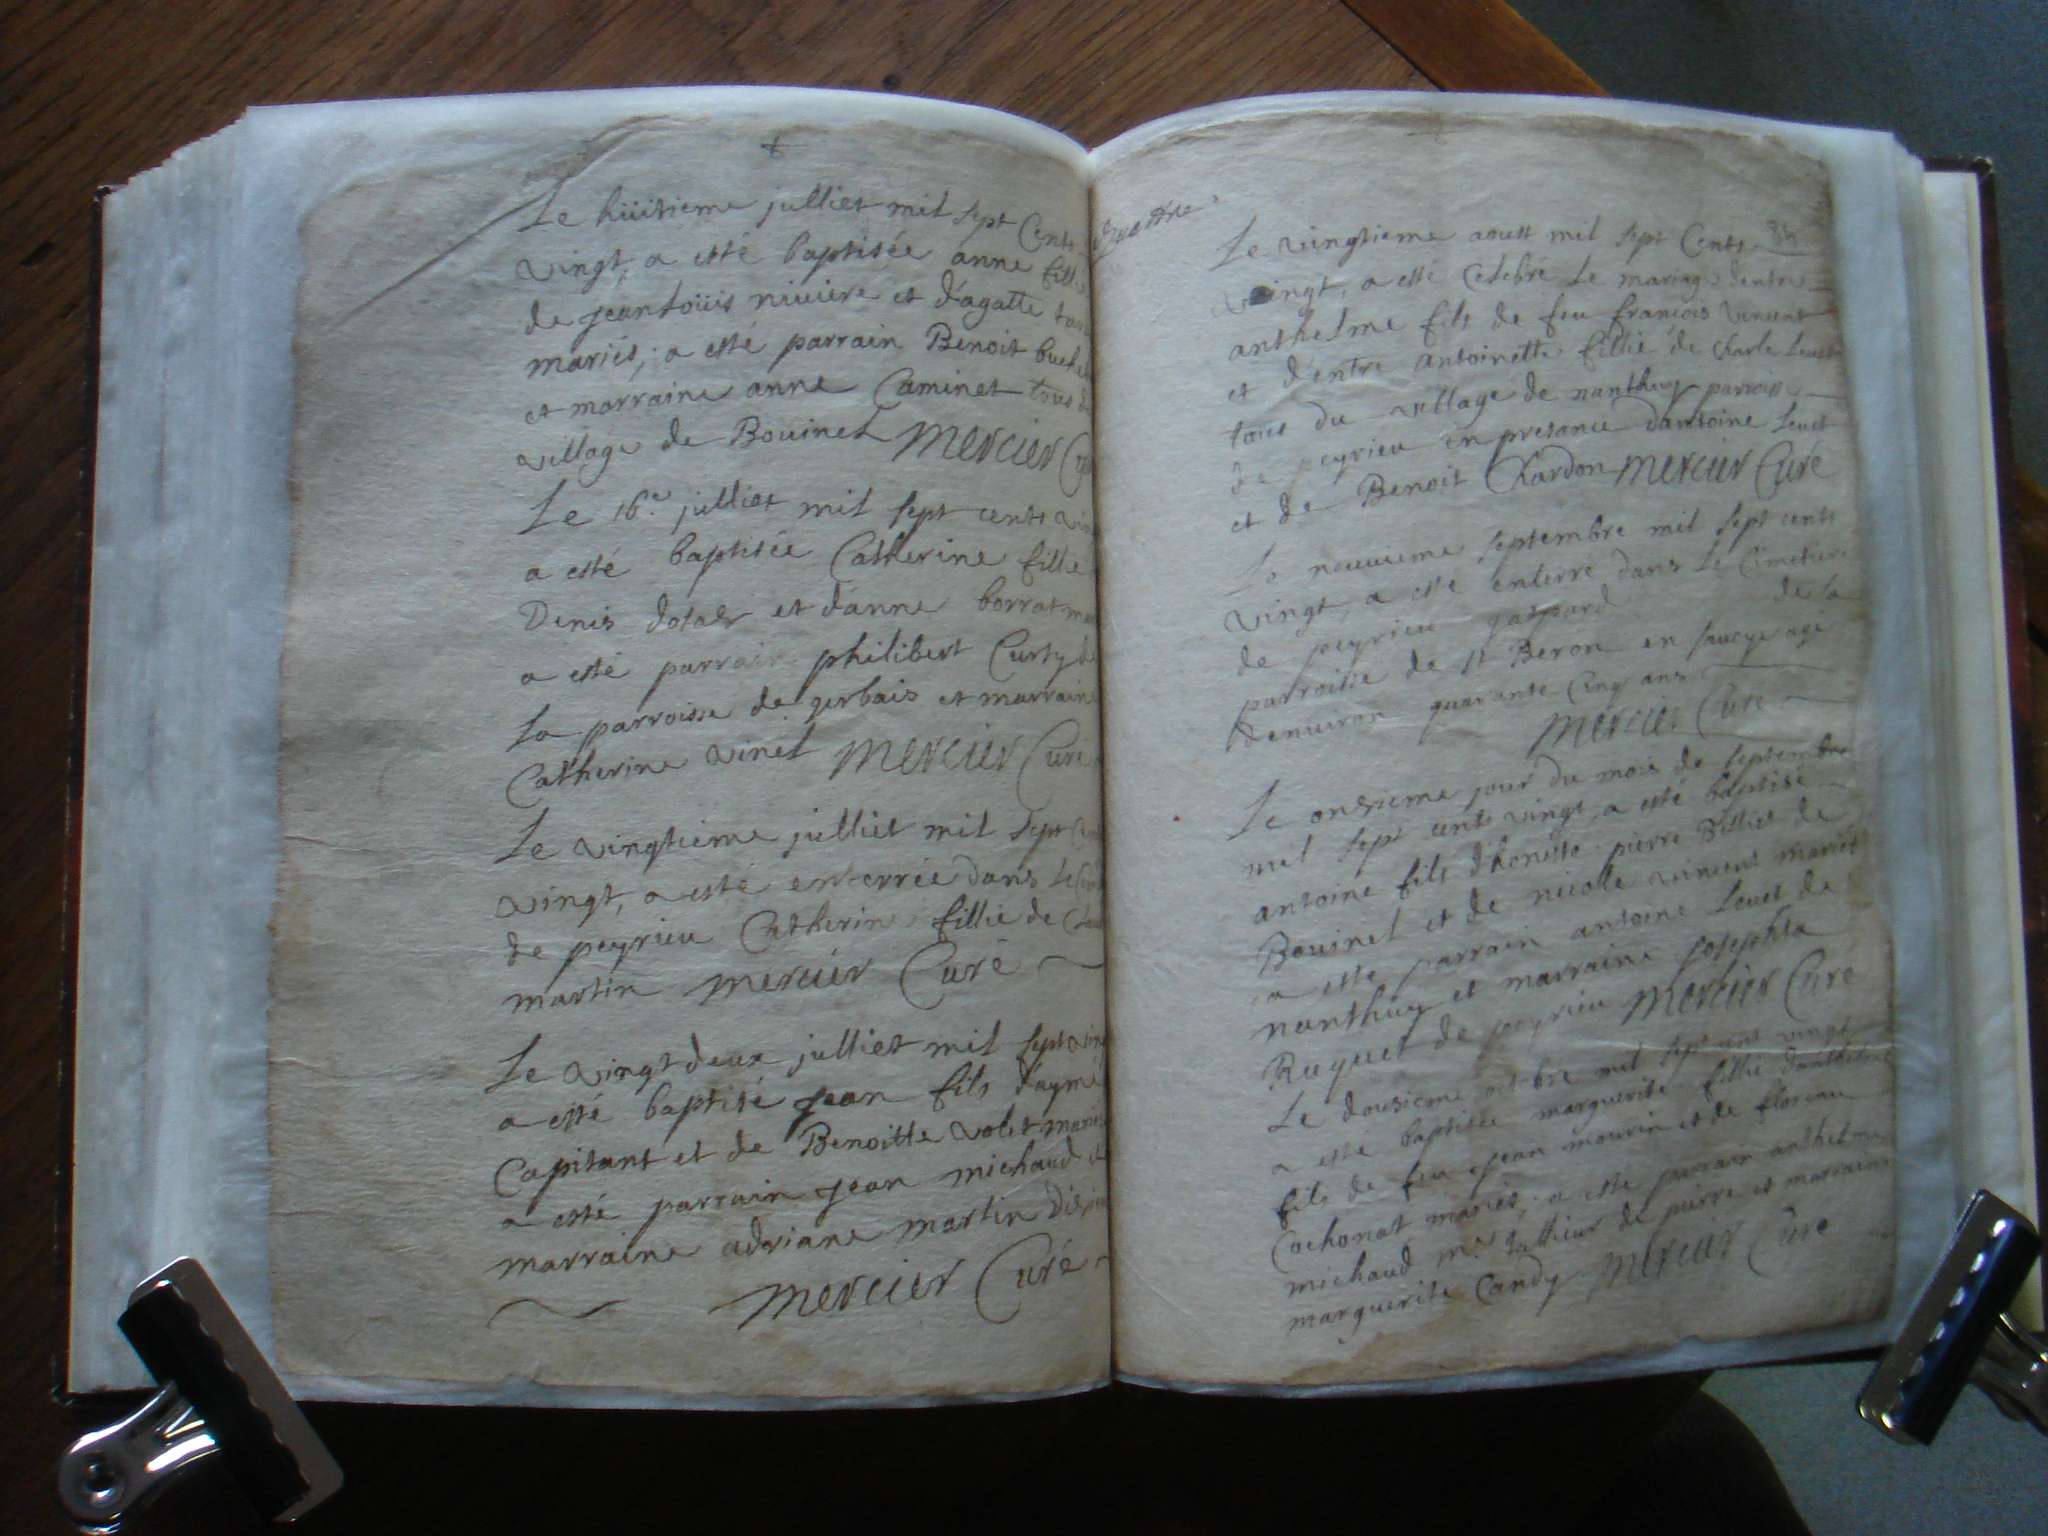 Le huitieme julliet mil sept Cents
vingt, a esté baptisée anne fillie
de jean louis niviere et d'agatte
mariés, a esté parrain Benoit
et marraine anne Caminet tous du
village de Bovinel mercier Curé
Le 16e julliet mil sept cents
a esté baptisée Catherine fillie
Denis et d'anne borrat
a esté parrain philibert Curty de
La parroisse de gerbais et marraine
Catherine vinel mercier Curé
Le vingtieme julliet mil sept
vingt, a esté enterrée dans le
de peyrieu Catherine fillie de
martin mercier Curé
Le vingt deux julliet mil sept
a esté baptisé jean fils d'aymé
Capitant et de Benoitte volet mariés
a esté parrain jean michaud et
marraine adriane martin
mercier Curé
quattre
84
Le vingtieme aoust mil sept Cents
vingt, a esté Celebré le mariage d'entre
anthelme fils de feu françois vincent
et d'entre antoinette fillie de charle Levet
tous du village de nanthuy parroisse
de peyrieu en presance d'antoine Levet
et de Benoit Chardon mercier Curé
Le neuvieme septembre mil sept cents
vingt, a esté enterré dans le Cimetiere
de peyrieu gaspard de la
parroisse de st Beron en savoye agé
denviron quarante Cinq ans
mercier Curé
Le onsieme jour du mois de septembre
mil sept cents vingt, a esté baptisé
antoine fils d'honeste pierre Billiet de
Bovinel et de nicolle vincent mariés
a esté parrain antoine Levet de
nanthuy et marraine josephta
Ruquet de peyrieu mercier Curé
Le dousieme octobre mil sept cent vingt
a esté baptisée marguerite fillie d'anthelme
fils de feu jean mourin et de
Cochonat mariés, a esté parrain anthelme
michaud me tallieur de pierre et marraine
marguerite Candy mercier Curé